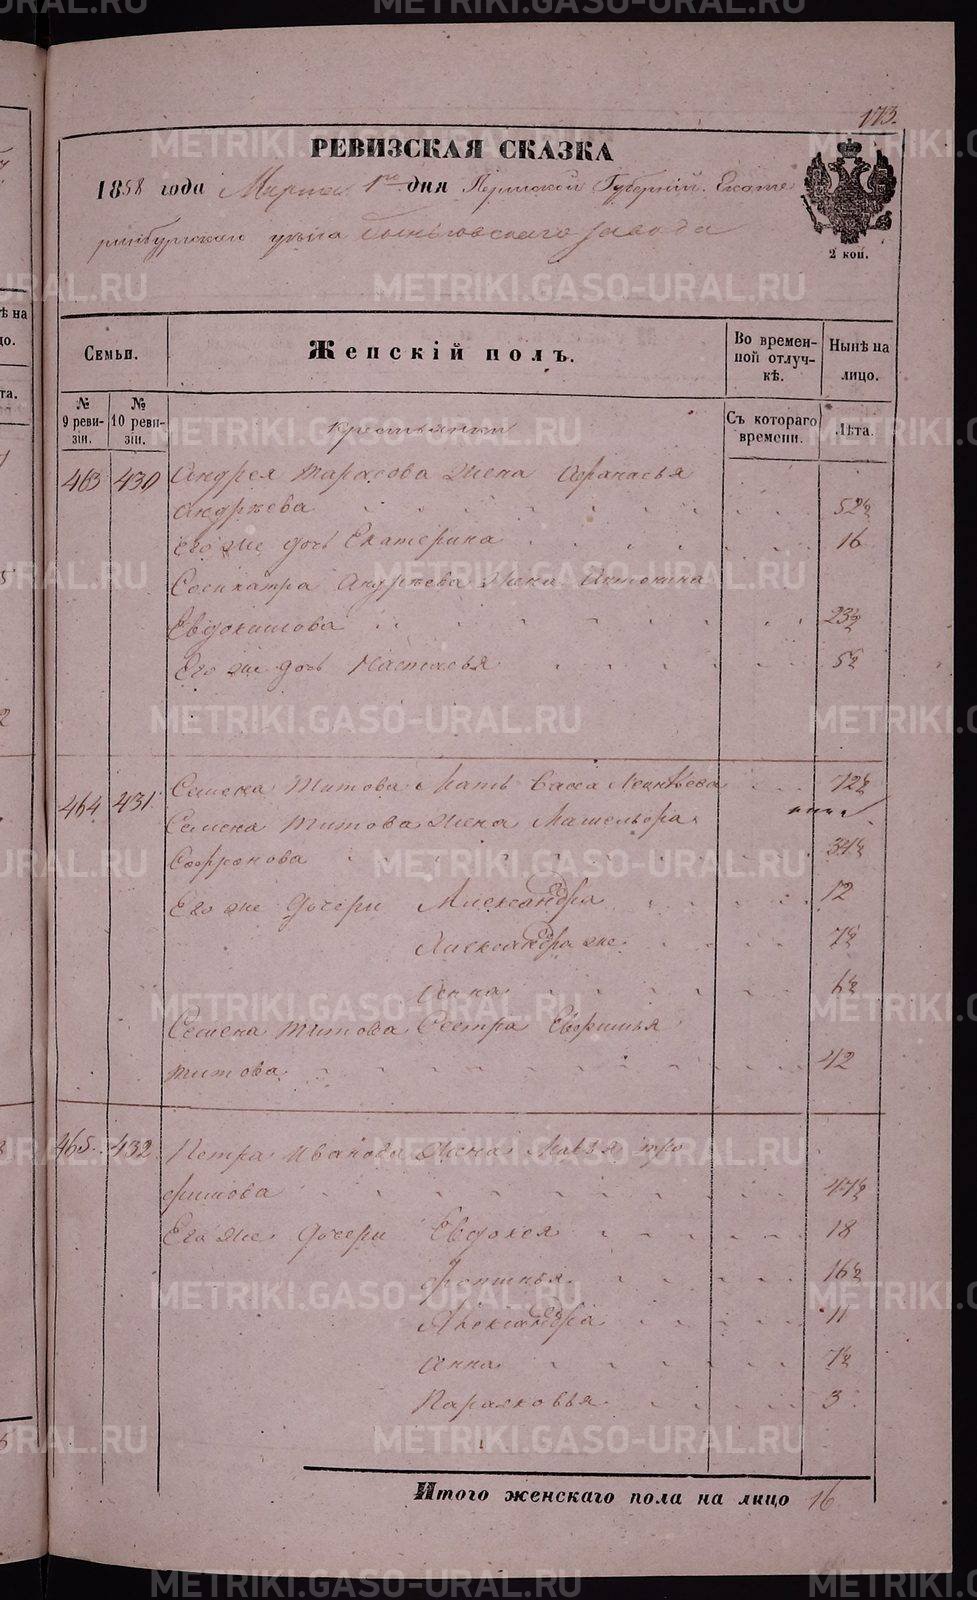 173.
РЕВИЗСКАЯ СКАЗКА
1858 года Марта 1го дня Пермской Губерніи Екате
ринбургскаго уезда Быньговскаго завода
2 коп.
Семьи.
Женскій полъ.
Во времен-
ной отлуч-
кѣ.
Нынѣ на
лицо.
№
9 реви-
зіи.
№
10 реви-
зіи.
Съ котораго
времени.
Лѣта.
Крестьянки
463 430 Андрея Тарасова жена Афанасья
Андреева 52½
Его же дочь Екатерина 16
Сосипатра Андреева жена Антонина
Евдокимова 23½
Его же дочь Настасья 5½
464 431 Семена Титова Мать Васса Леонтьева 72½
Семена Титова жена
Софронова 34½
Его же дочери Александра 12
Александра же 7½
Анна 6½
Семена Титова Сестра Евфимья
Титова 42
465 432 Петра Иванова жена Мавра Тро
фимова 47½
Его же дочери Евдокея 18
Фотинья 16½
Александра 11
Анна 7½
Парасковья 3
Итого женскаго пола на лицо 16
METRIKI.GASO-URAL.RU